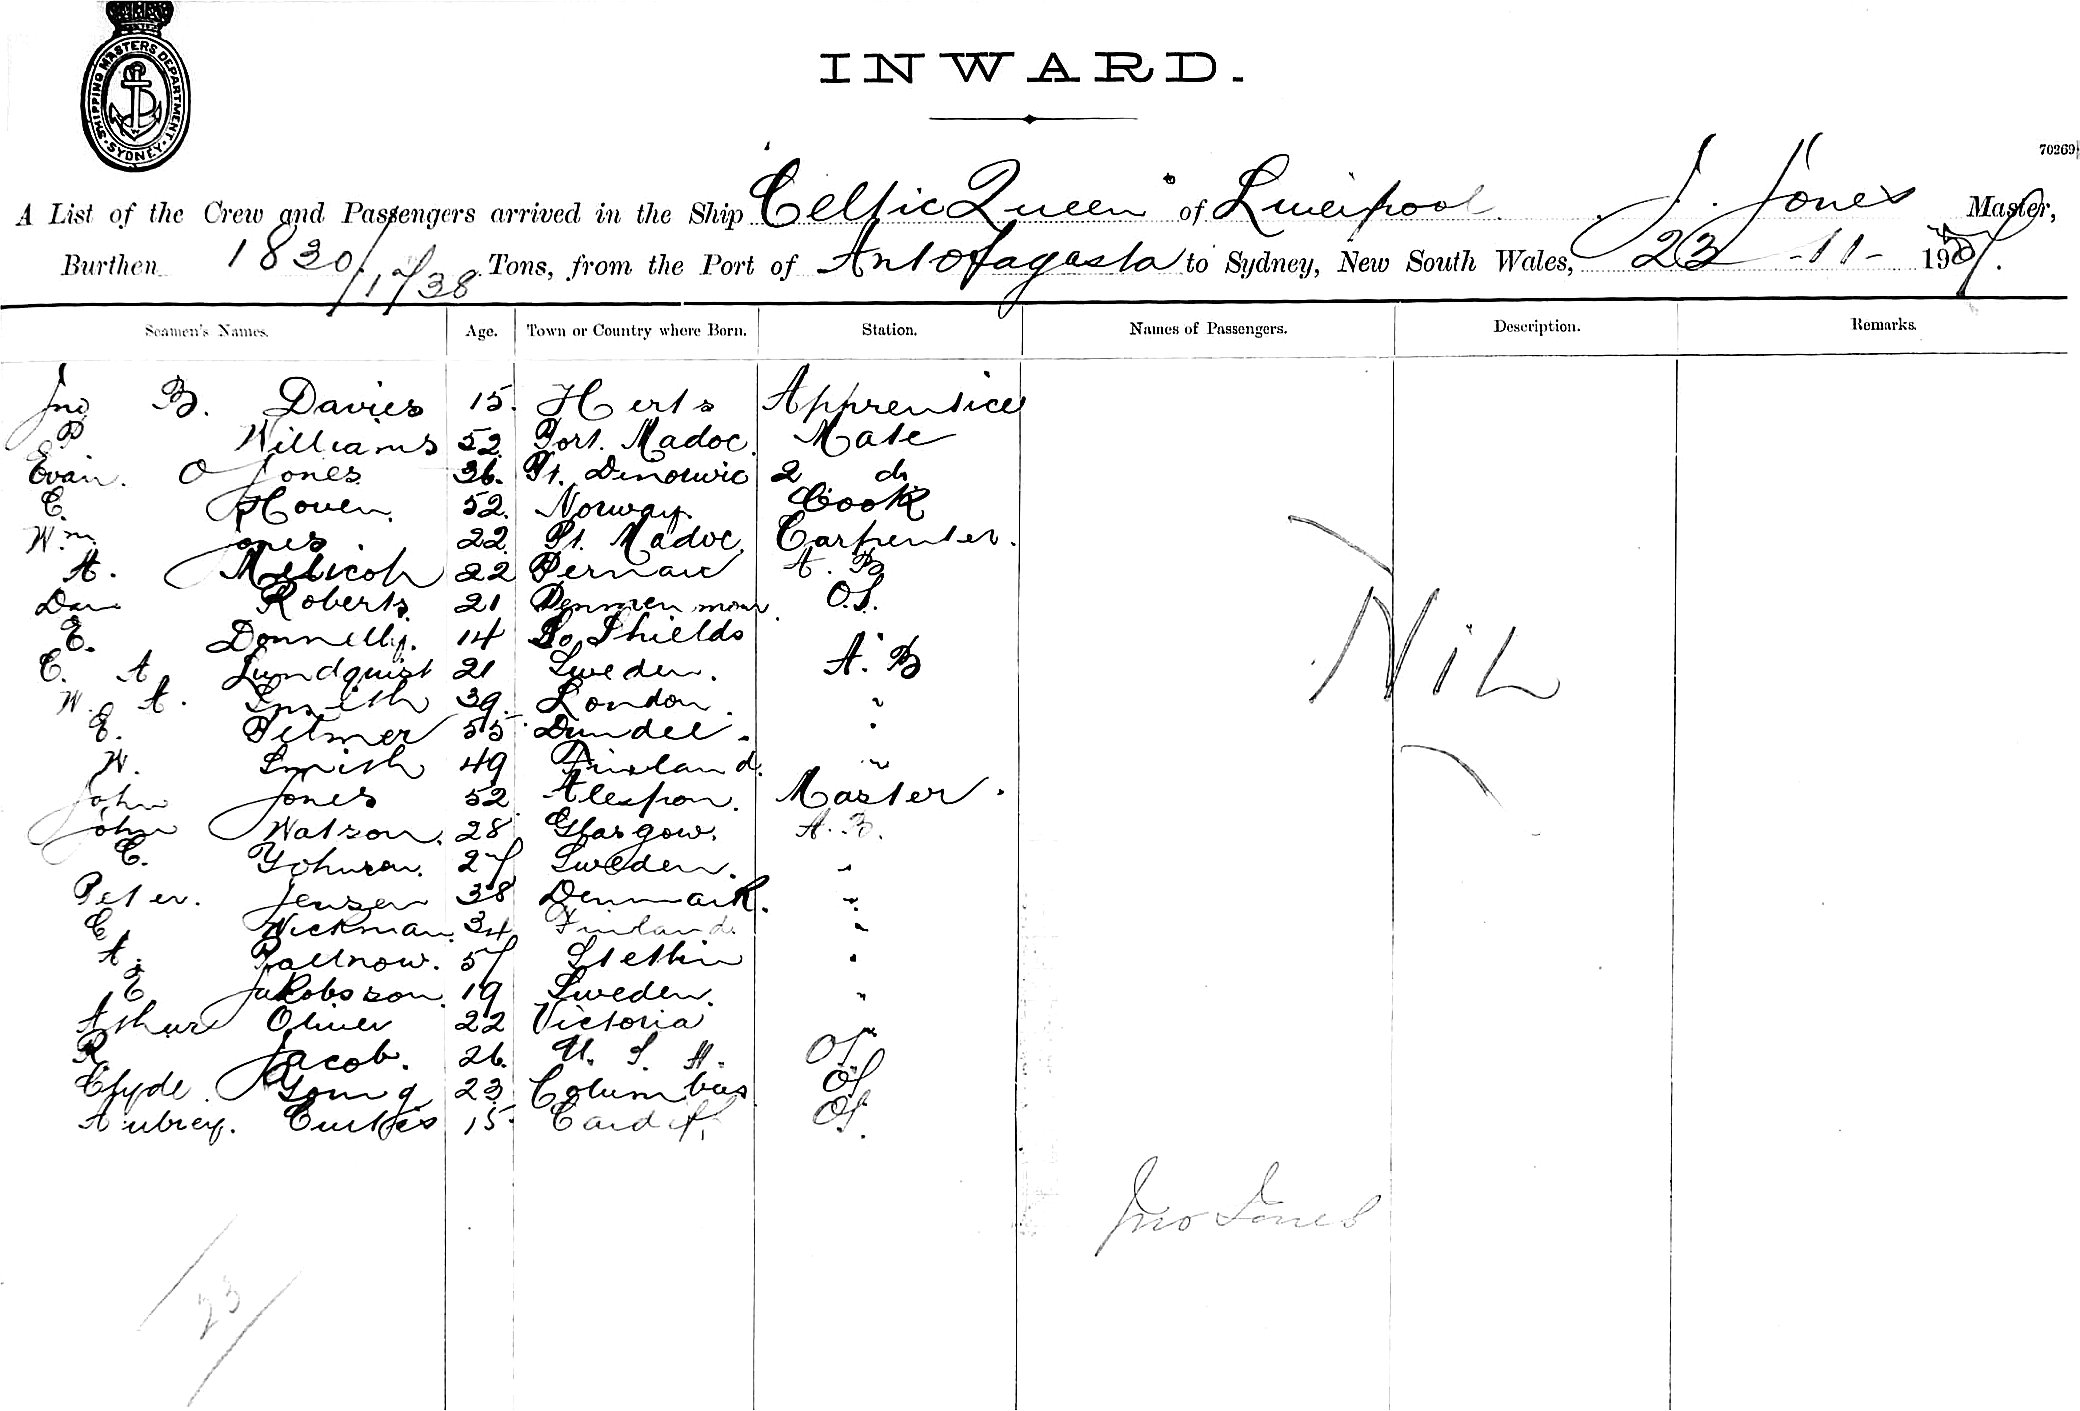 SHIPPING MASTERS DEPARTMENT. SYDNEY.
INWARD.
70269
A List of the Crew and Passengers arrived in the Ship "Celtic Queen" of Liverpool. J. Jones Master,
Burthen 1830/1738 Tons, from the Port of Antofagasta to Sydney, New South Wales, 23-11-1907.
Seamen's Names. Age. Town or Country where Born. Station. Names of Passengers. Description. Remarks.
Jno B. Davies 15. Herts Apprentice
P Williams 52 Port. Madoc. Mate
Evan. O Jones 36. Pt. Dinorwic 2 do
C. Hoven. 52. Norway. Cook
Wm. Jones 22 Pt. Madoc. Carpenter.
A. 22 A. B
Roberts. 21 O.S.
E. Donnelly. 14 So Shields "
C. A Lundquist 21 Sweden. A. B
W. A. Smith 39. London. "
E. 55. Dundee. "
W. Smith 49 Finland. "
Nil
John Jones 52 Master.
John Watson. 28 Glasgow. A. B.
C. Yohnson. 27 Sweden. "
Peter. Jensen 38 Denmark. "
E Wickman. 34 Finland. "
A. 57 Stettin "
E Jakobsson. 19 Sweden. "
Arthur Oliver 22 Victoria "
R Jacob. 26. U. S. A. OS
Clyde. Young 23 Columbus OS
Aubrey. Curtis 15. Cardiff. OS.
Jno Jones
23